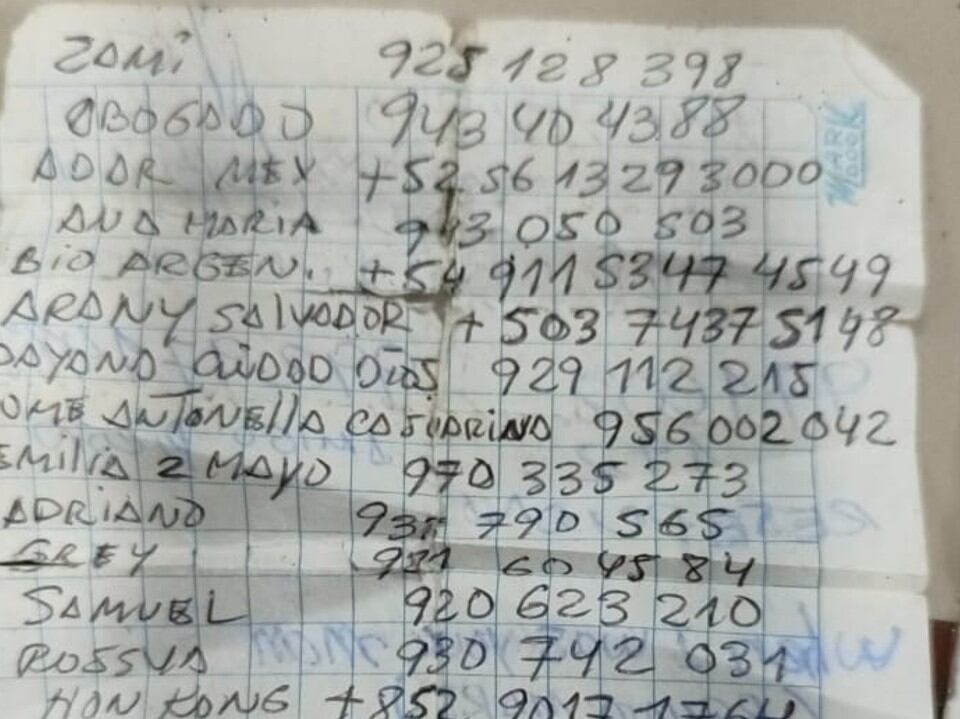 ZAMI 925 128 398
ABOGADO 943 40 43 88
ADAR MEX +52 56 13293000
ANA MARIA 943 050 503
BIO ARGEN. +54 911 5347 4549
ARANY SALVADOR +503 7437 5148
DAYANA CIUDAD DIOS 929 112 215
OME ANTONELLA CASUARINA 956 002 042
EMILIA 2 MAYO 970 335 273
ADRIANO 790 565
GREY 931 60 45 84
SAMUEL 920 623 210
ROSSYA 930 742 031
HON KONG +852 9017 1764